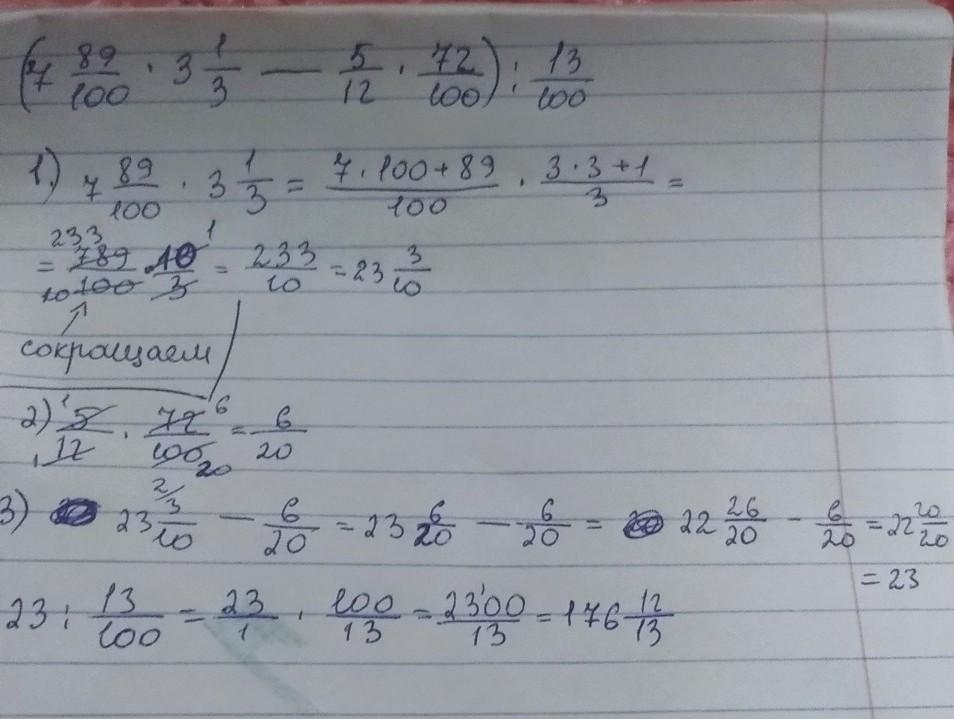 (7 89/100 · 3 1/3 — 5/12 · 72/100) : 13/100
1) 7 89/100 · 3 1/3 = 7·100+89/100 · 3·3+1/3 =
= 789/100 · 10/3 = 233/10 = 23 3/10
233 10 1
сокращаем
2) 5/12 · 72/100 = 6/20
1 1 6 20
3) 23 3/10 — 6/20 = 23 6/20 — 6/20 = 22 26/20 - 6/20 = 22 20/20
2/
= 23
23 : 13/100 = 23/1 · 100/13 = 2300/13 = 176 12/13